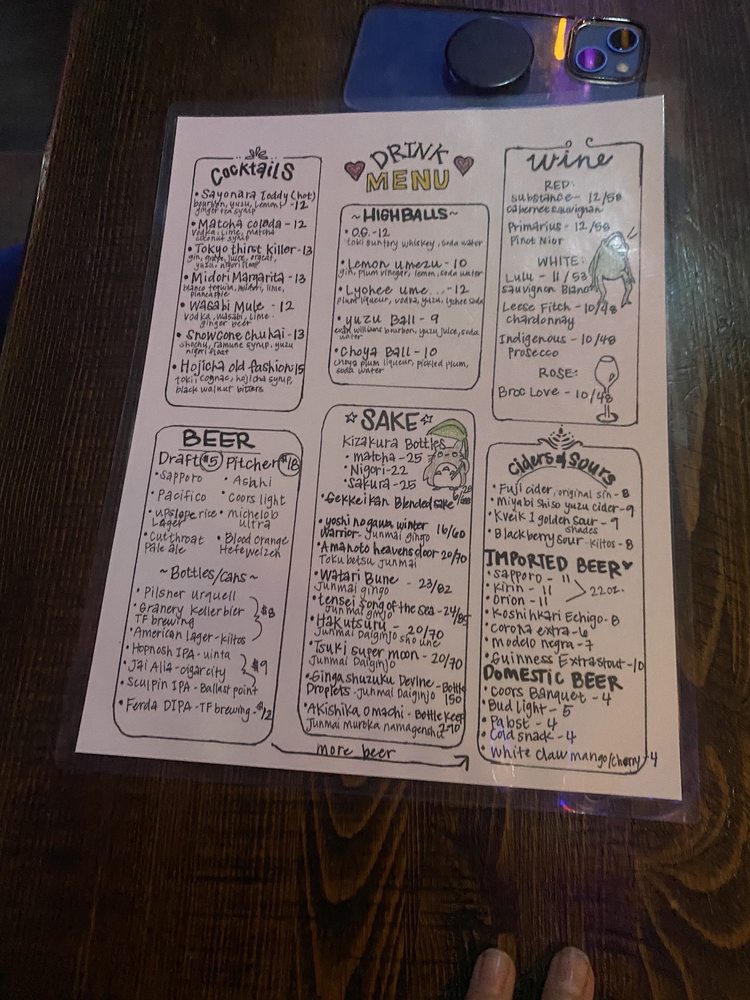 DRINK
MENU
Cocktails
• Sayonara Toddy (hot)
bourbon, yuzu, lemon, -12
ginger tea syrup
• Matcha colada - 12
vodka, lime, matcha
coconut syrup
• Tokyo thirst killer - 13
gin, grape juice, orgeat,
yuzu, nigori float
• Midori Margarita - 13
blanco tequila, midori, lime,
pinneaple
• Wasabi Mule - 12
vodka, wasabi, lime
ginger beer
• Snowcone chuhai - 13
shochu, ramune syrup, yuzu
nigori float
• Hojicha old fashion 15
toki, cognac, hojicha syrup,
black walnut bitters
~HIGHBALLS~
• O.G. -12
toki suntory whiskey, soda water
• Lemon umezu - 10
gin, plum vinegar, lemon, soda water
• Lychee ume... - 12
plum liqueur, vodka, yuzu, lychee soda
• yuzu Ball - 9
evan williams bourbon, yuzu juice, soda
water
• Choya Ball - 10
choya plum liqueur, pickled plum,
soda water
Wine
RED:
Substance - 12/58
cabernet sauvignan
Primarius - 12/58
Pinot Nior
WHITE:
Lulu - 11/53
sauvignon Blanc
Leese Fitch - 10/48
chardonnay
Indigenous - 10/48
Prosecco
ROSE:
Broc Love - 10/48
BEER
Draft $5 Pitcher $18
• Sapporo • Asahi
• Pacifico • Coors light
• upslope rice • michelob
Lager ultra
• Cutthroat • Blood orange
Pale ale Hefeweizen
~Bottles/cans~
• Pilsner Urquell
• Granery Kellerbier $8
TF brewing
• American Lager - kiltos
• Hopnosh IPA - uinta
• Jai Alia - cigar city $9
• Sculpin IPA - Ballast point
• Ferda DIPA - TF brewing - $12
☆SAKE☆
Kizakura Bottles
• matcha - 25
• Nigori - 22
• Sakura - 25
• Gekkeikan Blended sake
• yoshi nogawa winter 16/60
warrior - Junmai gingo
• Amanoto heavens door 20/70
Toku betsu junmai
• Watari Bune - 23/82
Junmai gingo
• tensei song of the sea - 24/85
Junmai ginjo
• Hakutsuru - 20/70
Junmai Daiginjo sho une
• Tsuki super moon - 20/70
Junmai Daiginjo
• Ginga shuzuku Devine - Bottle
Droplets - Junmai Daiginjo 150
• Akishika omachi - Bottle keep
Junmai muroka namagenshu 270
Ciders & Sours
• Fuji cider, original sin - 8
• Miyabi Shiso yuzu cider - 9
• Kveik 1 golden Sour - 9
shades
• Blackberry sour - kiltos - 8
IMPORTED BEER♥
• Sapporo - 11
• Kirin - 11 22oz.
• Orion - 11
• Koshihkari Echigo - 8
• corona extra - 6
• modelo negra - 7
• Guinness Extra stout - 10
DOMESTIC BEER
• Coors Banquet - 4
• Bud light - 5
• Pabst - 4
• Cold snack - 4
• white claw mango/cherry - 4
more beer